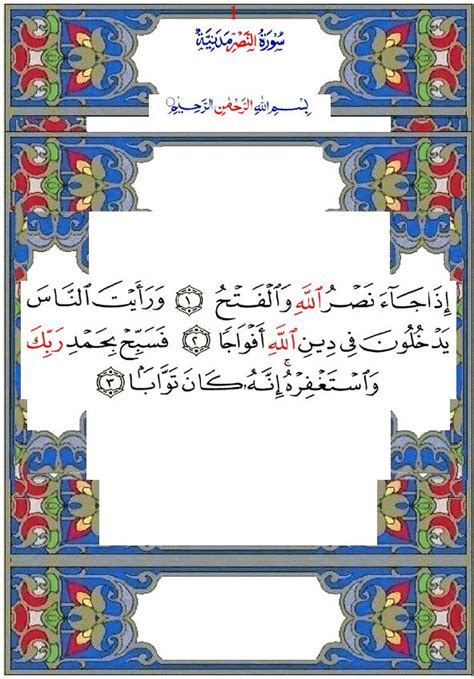 1
سُورَةُ النَّصْرِ مَدَنِيَّة
بِسْمِ اللهِ الرَّحْمٰنِ الرَّحِيمِ
إِذَا جَآءَ نَصْرُ اللَّهِ وَالْفَتْحُ ١ وَرَأَيْتَ النَّاسَ
يَدْخُلُونَ فِى دِينِ اللَّهِ أَفْوَاجًا ٢ فَسَبِّحْ بِحَمْدِ رَبِّكَ
وَاسْتَغْفِرْهُ ۚ إِنَّهُۥ كَانَ تَوَّابًۢا ٣